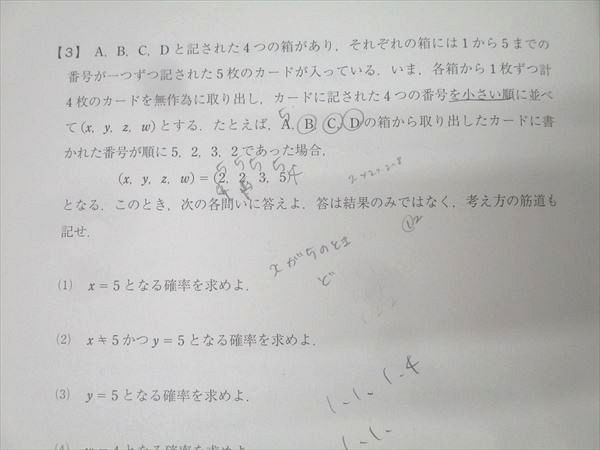 【3】 A, B, C, D と記された4つの箱があり，それぞれの箱には1から5までの
番号が一つずつ記された5枚のカードが入っている．いま，各箱から1枚ずつ計
4枚のカードを無作為に取り出し，カードに記された4つの番号を小さい順に並べ
5
て(x, y, z, w)とする．たとえば，A, B, C, D の箱から取り出したカードに書
かれた番号が順に 5, 2, 3, 2 であった場合，
5 5 5 5
(x, y, z, w) = (2, 2, 3, 5)
4
となる．このとき，次の各問いに答えよ．答は結果のみではなく，考え方の筋道も
記せ．
xが5のとき
ど
(1) x = 5 となる確率を求めよ．
(2) x ≠ 5 かつ y = 5 となる確率を求めよ．
(3) y = 5 となる確率を求めよ．
1, 1, 1, 4
1, 1,